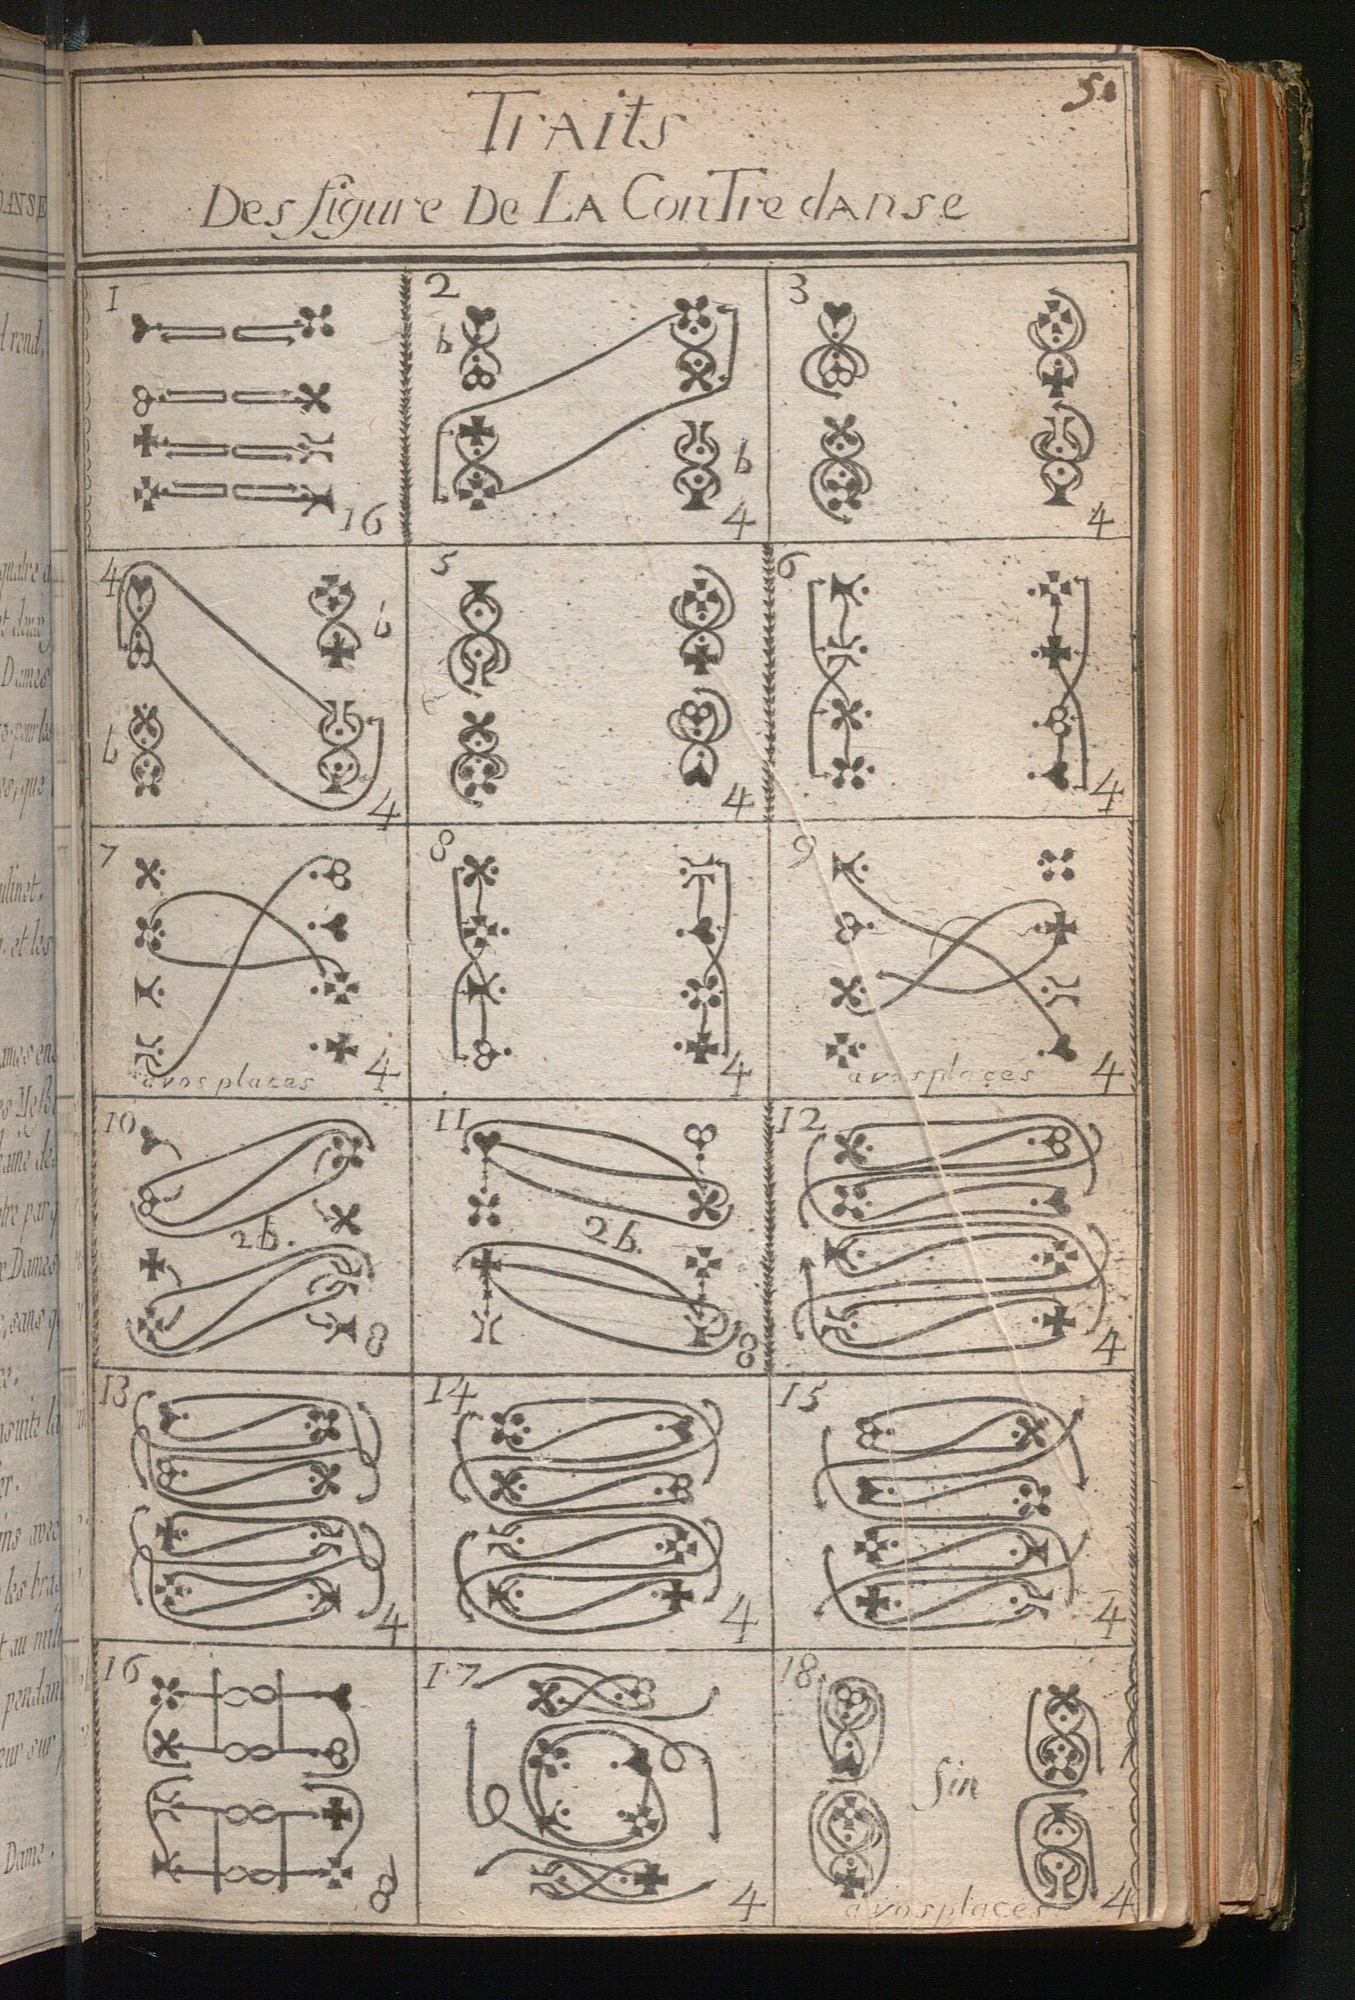 51
Traits
Des figure De La Contredanse
1
16
2
b
b
4
3
4
4
b
b
4
5
4
6
4
7
avosplaces
4
8
4
9
avosplaces
4
10
2b.
8
11
2b.
8
12
4
13
4
14
4
15
4
16
8
17
4
18
fin
avosplaces
4
DANSE
Dames
Dame.